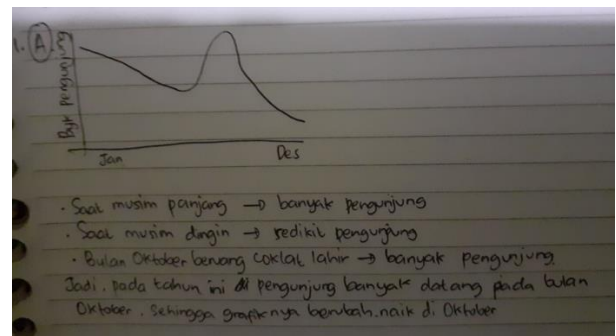 1. A.
Byk pengunjung
Jan Des
• Saat musim panjang → banyak pengunjung
• Saat musim dingin → sedikit pengunjung
• Bulan Oktober beruang coklat lahir → banyak pengunjung
Jadi, pada tahun ini pengunjung banyak datang pada bulan
Oktober, sehingga grafiknya berubah naik di Oktober